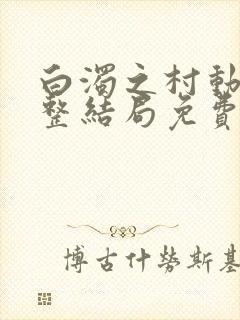 白濁之村動
整結局免費
博古什勞斯基